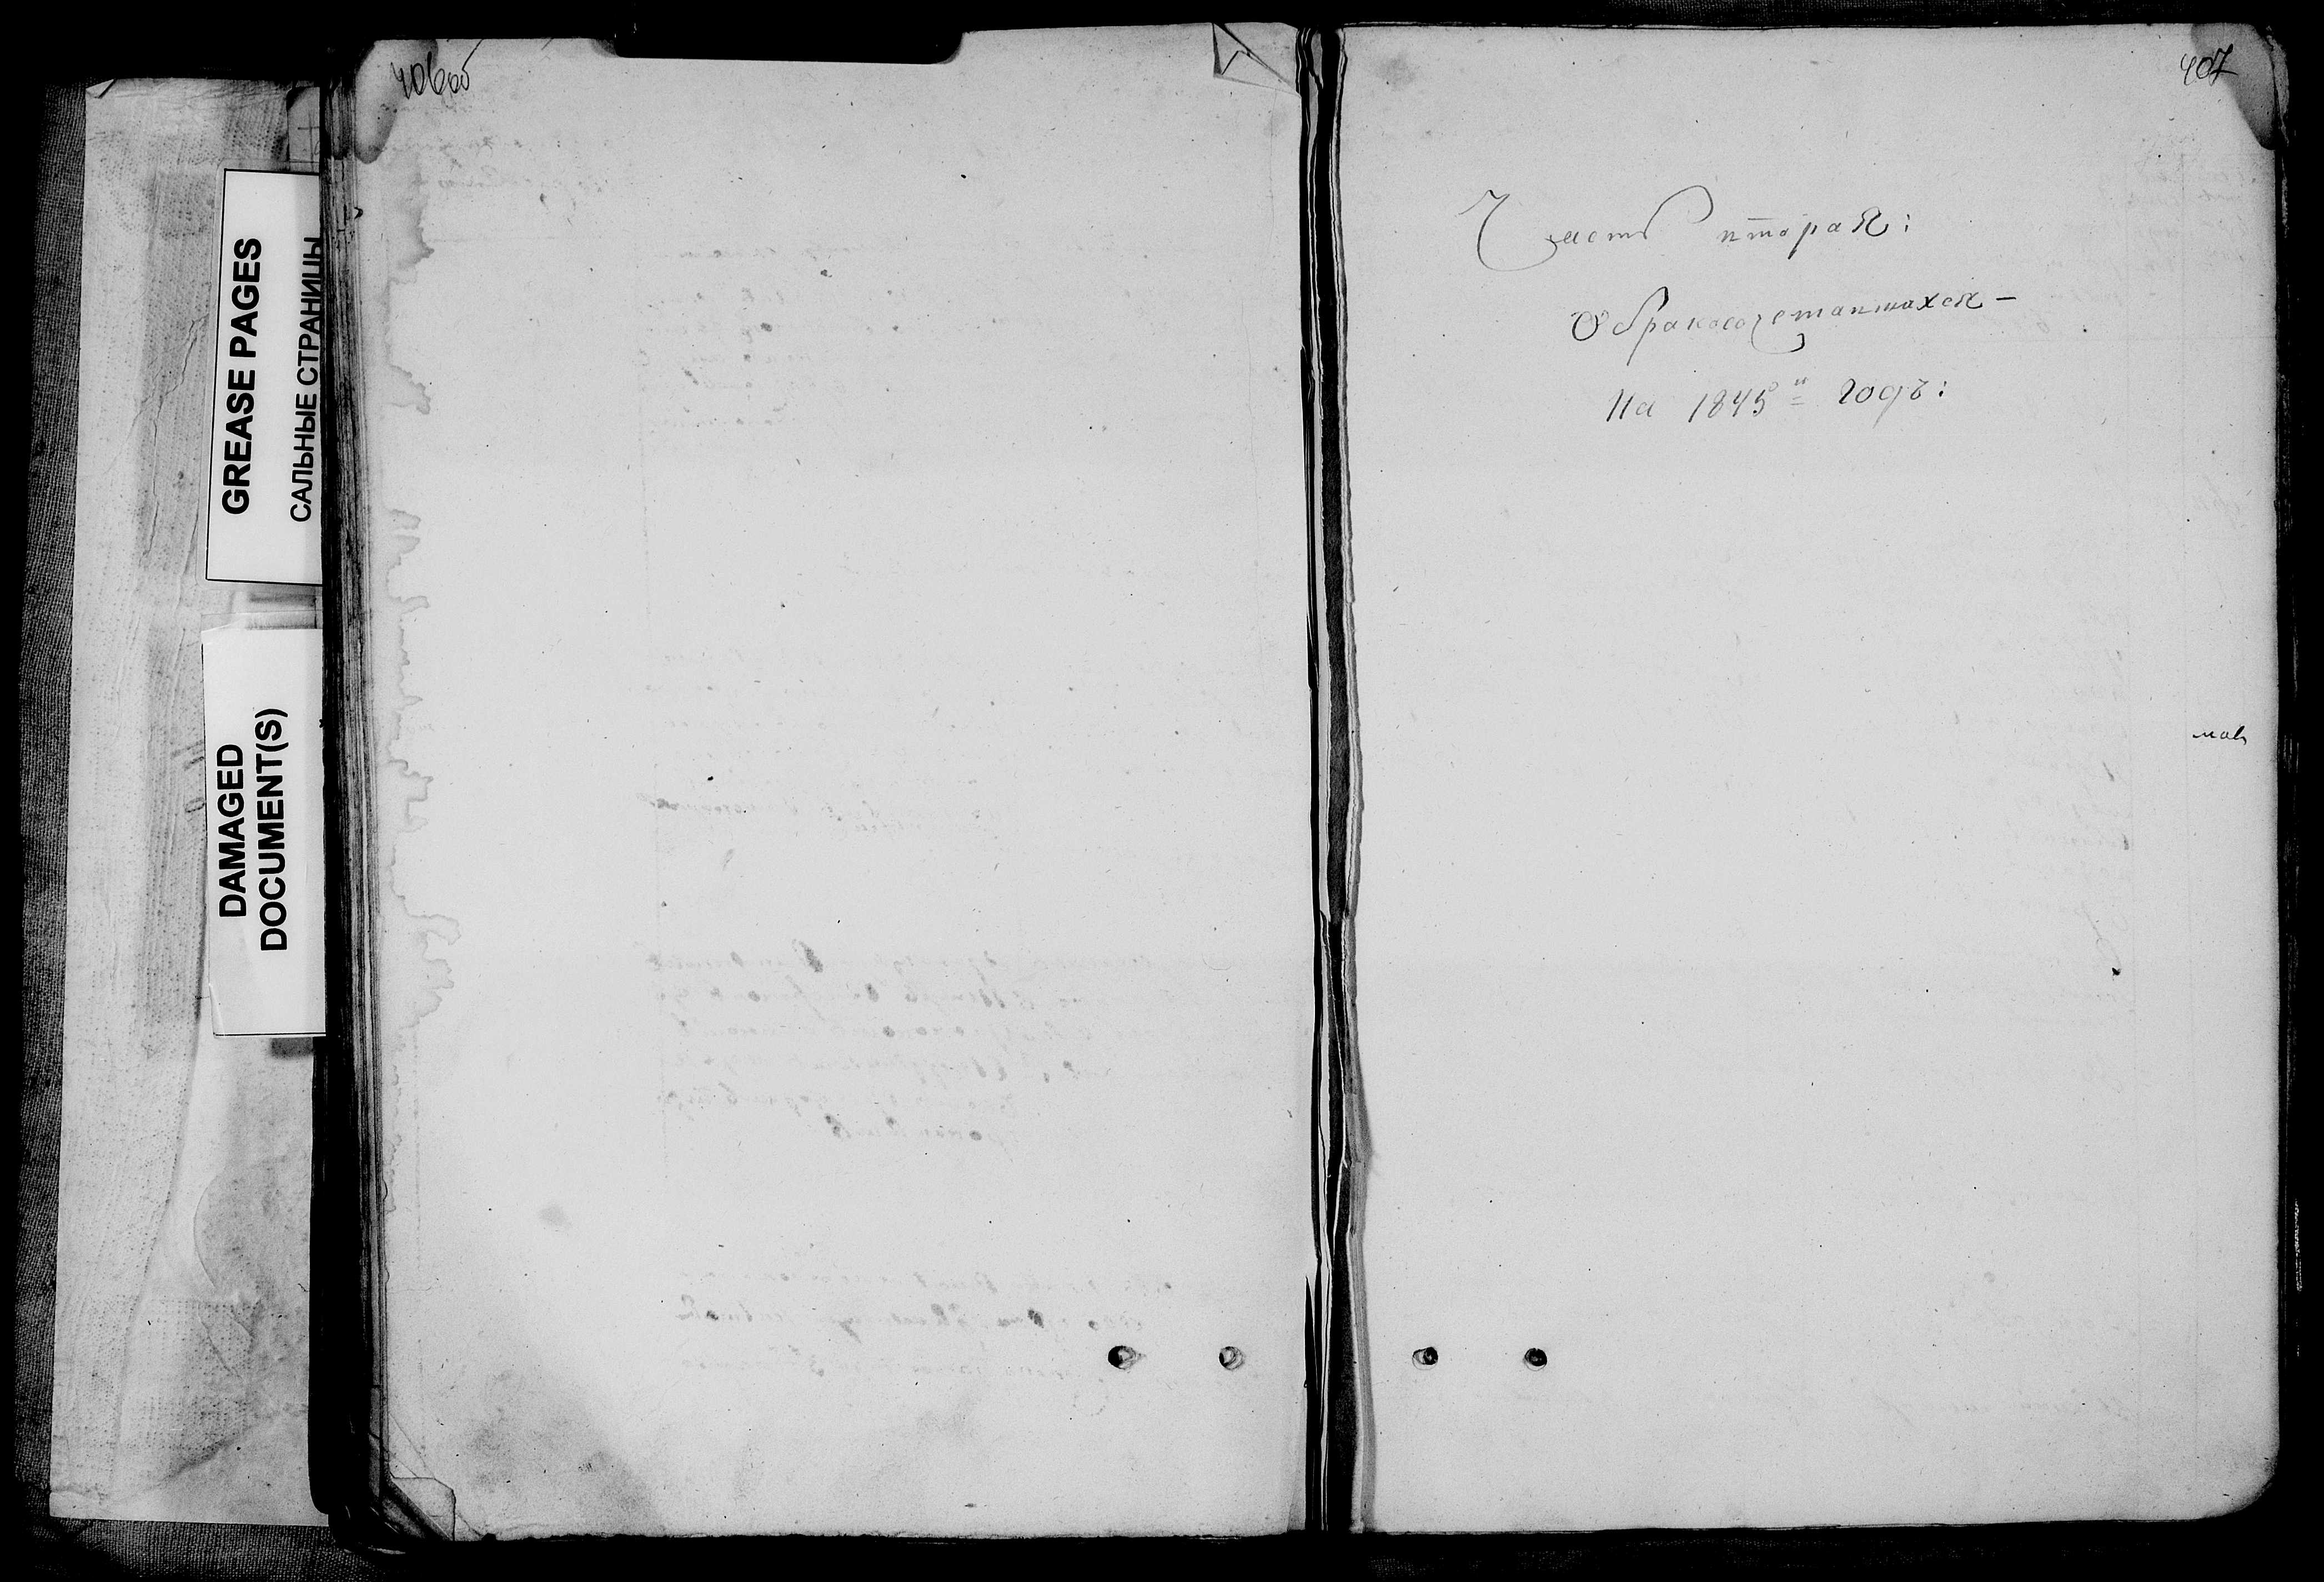 GREASE PAGES
САЛЬНЫЕ СТРАНИЦЫ
DAMAGED
DOCUMENT(S)
406об
407
Часть вторая:
О бракосочетавшихся –
На 1845й годъ: